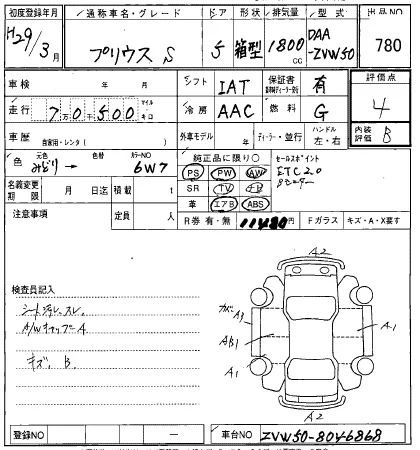 初度登録年月 通称車名・グレード ドア 形状 排気量 型式 出品NO
H29年/3月 プリウス S 5 箱型 1800cc DAA-ZVW50 780
車検 年 月 シフト IAT 保証書 有 評価点
走行 7万0千500 マイル キロ 冷房 AAC 燃料 G 4
車歴 自家用・レンタ( ) 外車モデル 年 ディーラー・並行 ハンドル 左・右 内装評価 B
色 元色 みどり 色替 カラーNO 6W7 純正品に限り○ セールスポイント
名義変更期限 月 日迄 積載 t PS PW AW ETC2.0
SR TV ナビ
注意事項 定員 人 革 エアB ABS
R券 有・無 11480円 Fガラス キズ・A・X要す
検査員記入
シート汚レ、スレ
A/Wキャップ−A
キズ、B
A2
A1 A1
AB1
A1
A2
登録NO ー 車台NO ZVW50-8046868